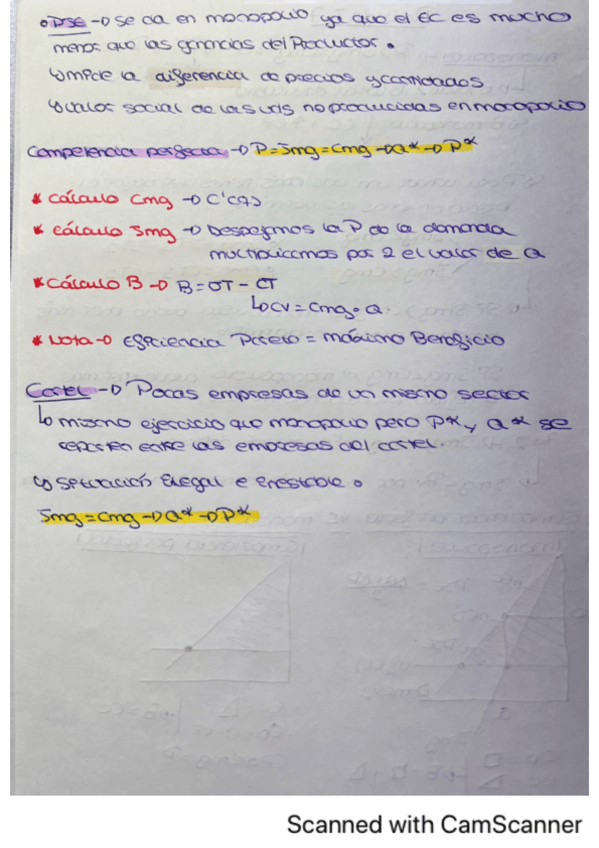 • PSE → se da en monopolio ya que el EC es mucho
menos que las ganancias del Productor.
↳ mide la diferencia de precios y cantidades
↳ valor social de las uds no producidas en monopolio
Competencia perfecta → P = Img = Cmg → Q* → P*
* Cálculo Cmg → C'(q)
* Cálculo Img → Despejamos la P de la demanda
multiplicamos por 2 el valor de Q
* Cálculo B → B = IT - CT
↳ CV = Cmg · Q.
* Nota → Eficiencia Pareto = máximo Beneficio
Cartel → Pocas empresas de un mismo sector
↳ mismo ejercicio que monopolio pero P*, y Q* se
reparten entre las empresas del cartel.
↳ Situación Ilegal e Inestable.
Img = Cmg → Q* → P*
Scanned with CamScanner